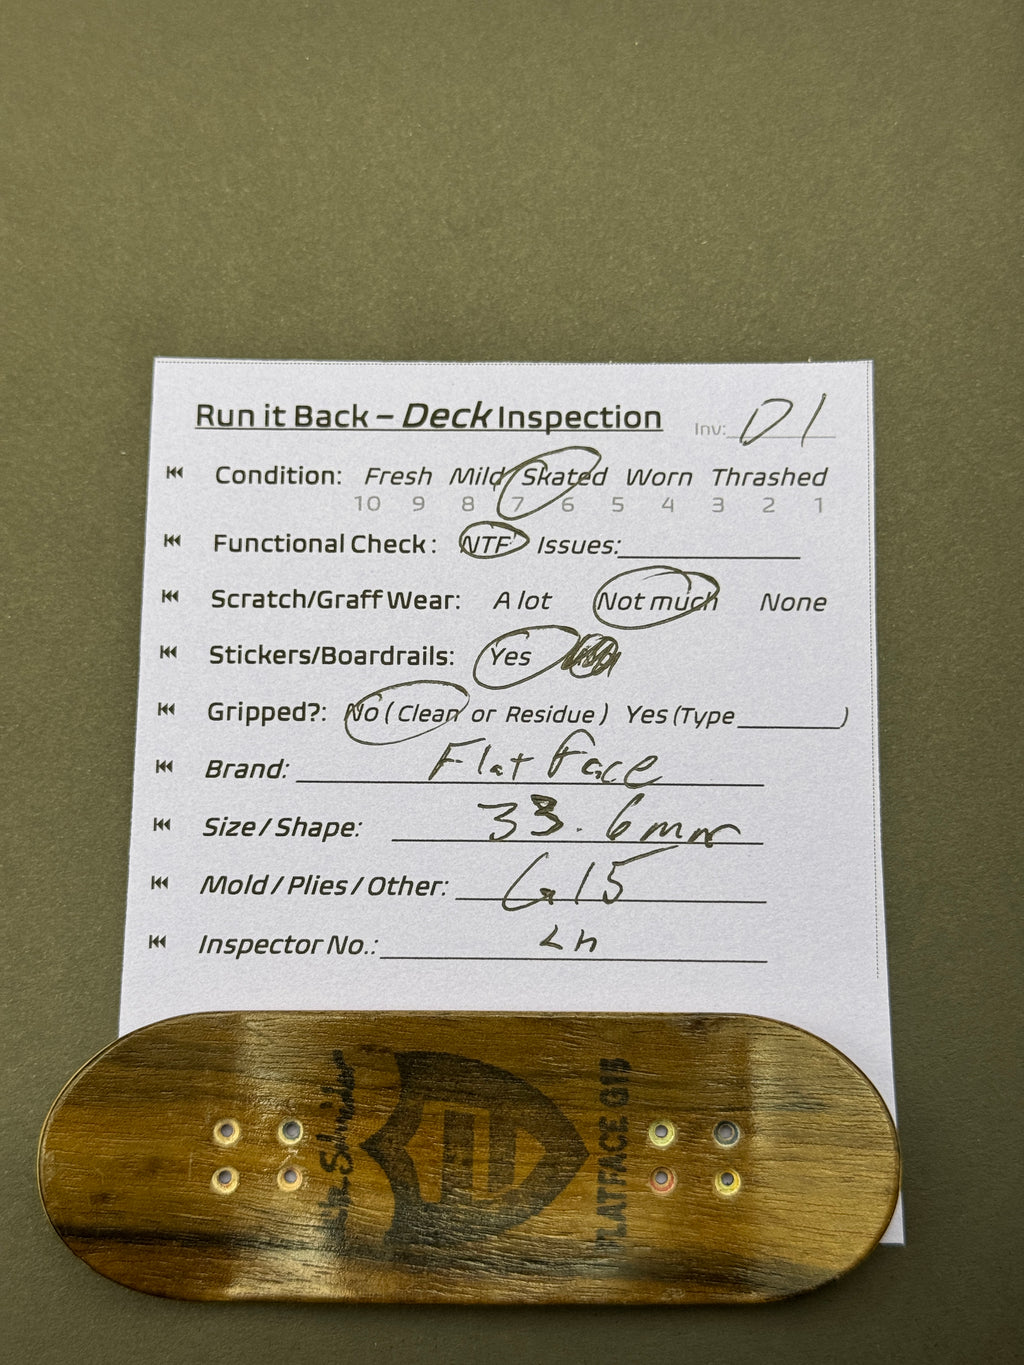 Run it Back – Deck Inspection Inv: D1
Condition: Fresh Mild Skated Worn Thrashed
10 9 8 7 6 5 4 3 2 1
Functional Check: NTF Issues:
Scratch/Graff Wear: A lot Not much None
Stickers/Boardrails: Yes
Gripped?: No (Clean or Residue) Yes (Type )
Brand: Flat face
Size / Shape: 33.6mm
Mold / Plies / Other: G15
Inspector No.:
FLATFACE G15